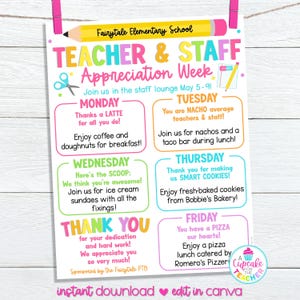 Fairytale Elementary School
TEACHER & STAFF
Appreciation Week
Join us in the staff lounge May 5-9!
MONDAY
Thanks a LATTE
for all you do!
Enjoy coffee and
doughnuts for breakfast!
TUESDAY
You are NACHO average
teachers & staff!
Join us for nachos and a
taco bar during lunch!
WEDNESDAY
Here's the SCOOP:
We think you're awesome!
Join us for ice cream
sundaes with all the
fixings!
THURSDAY
Thank you for making
us SMART COOKIES!
Enjoy fresh-baked cookies
from Bobbie's Bakery!
THANK YOU
for your dedication
and hard work!
We appreciate you
so very much!
Sponsored by the Fairytale PTO
FRIDAY
You have a PIZZA
our hearts!
Enjoy a pizza
lunch catered by
Romero's Pizzeria!
the
Cupcake
TEACHER
instant download ♥ edit in canva